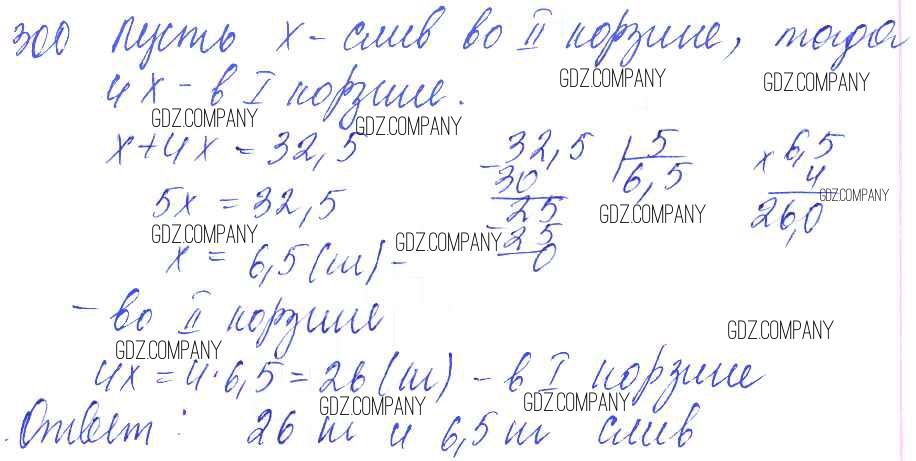 300 Пусть x - слив во II корзине, тогда
GDZ.COMPANY GDZ.COMPANY
4x - в I корзине.
GDZ.COMPANY GDZ.COMPANY
x + 4x = 32,5
5x = 32,5
GDZ.COMPANY GDZ.COMPANY
x = 6,5 (ш) -
- 32,5 | 5
30 6,5
- 25
25
0
GDZ.COMPANY
x 6,5
4
26,0
GDZ.COMPANY
- во II корзине
GDZ.COMPANY GDZ.COMPANY
4x = 4 · 6,5 = 26 (ш) - в I корзине
GDZ.COMPANY GDZ.COMPANY
Ответ: 26 ш и 6,5 ш слив